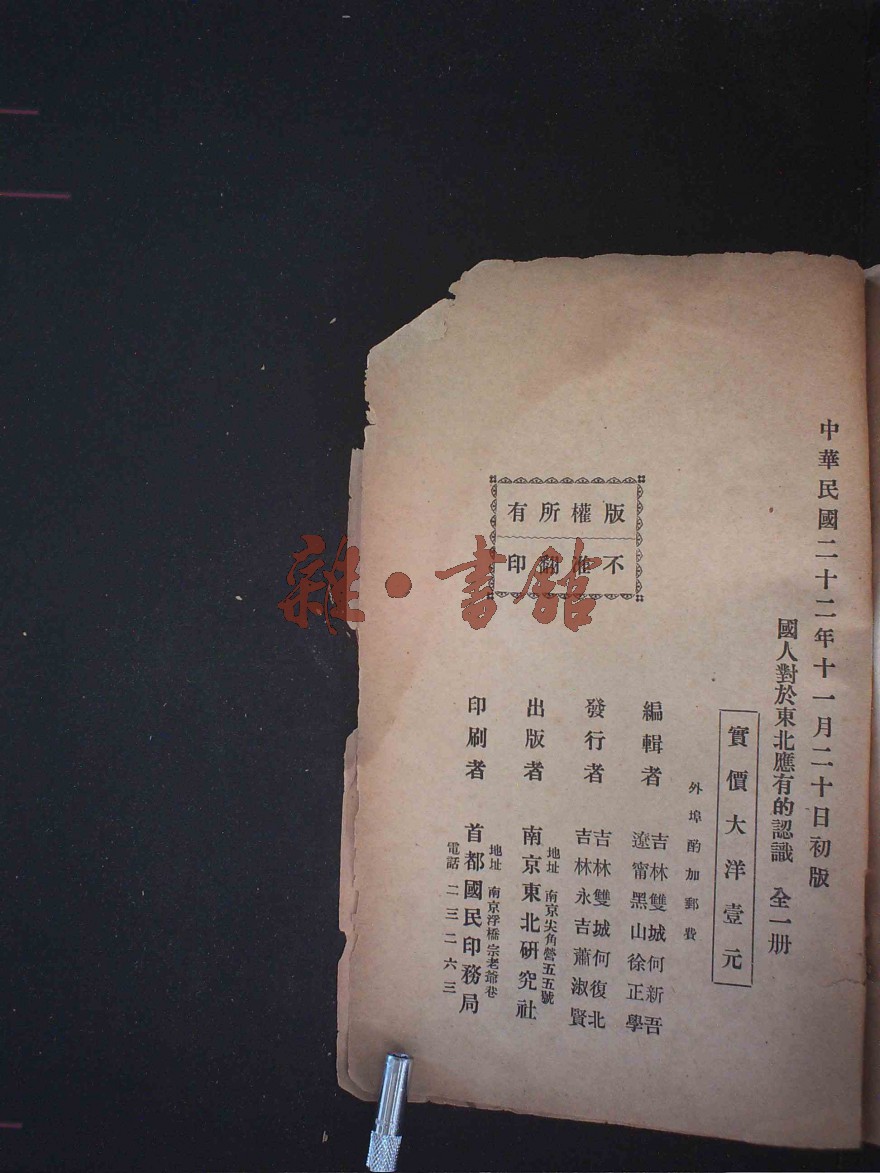 中華民國二十二年十一月二十日初版
國人對於東北應有的認識 全一册
實價大洋壹元
外埠酌加郵費
編輯者
吉林雙城何新吾
遼甯黑山徐正學
發行者
吉林雙城何復北
吉林永吉蕭淑賢
出版者
南京東北研究社
地址 南京尖角營五五號
印刷者
首都國民印務局
地址 南京浮橋宗老爺巷
電話 二三二六三
版權所有
不准翻印
雜·書館